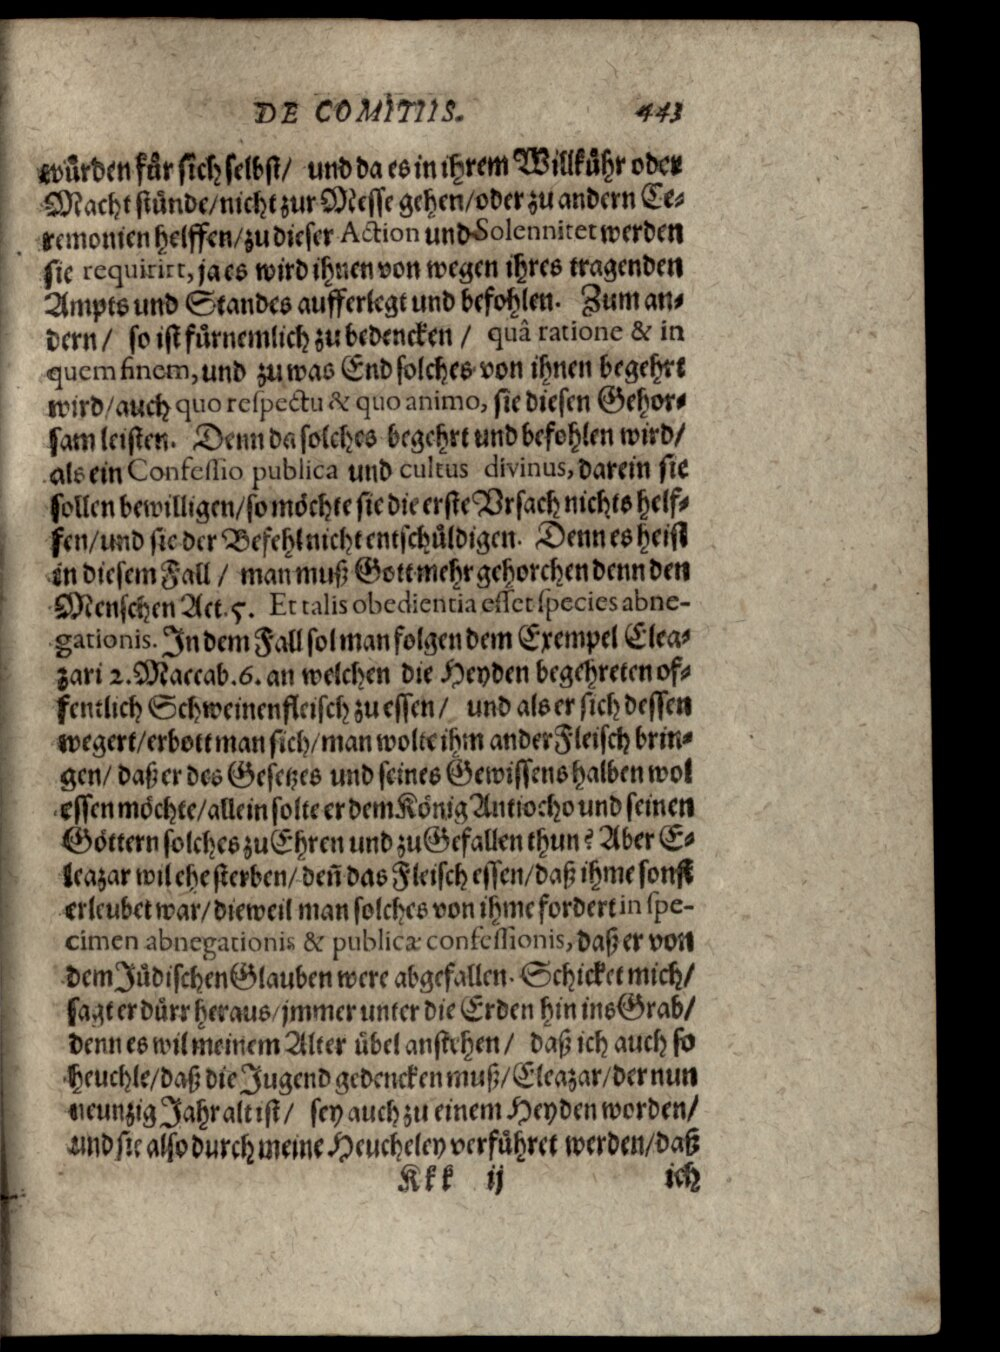 DE COMITIIS. 443
wuͤrden fuͤr sich selbst/ und da es in ihrem Willkuͤhr oder
Macht stuͤnde/nicht zur Messe gehen/oder zu andern Ce-
remonien helffen/zu dieser Action und Solennitet werden
sie requirirt, ja es wird ihnen von wegen ihres tragenden
Ampts und Standes aufferlegt und befohlen. Zum an-
dern/ so ist fuͤrnemlich zu bedencken/ quâ ratione & in
quem finem, und zu was End solches von ihnen begehrt
wird/auch quo respectu & quo animo, sie diesen Gehor-
sam leisten. Denn da solches begehrt und befohlen wird/
als ein Confessio publica und cultus divinus, darein sie
sollen bewilligen/so moͤchte sie die erste Vrsach nichts helf-
fen/und sie der Befehl nicht entschuͤldigen. Denn es heist
in diesem Fall/ man muß Gott mehr gehorchen denn den
Menschen Act. 5. Et talis obedientia esset species abne-
gationis. In dem Fall sol man folgen dem Exempel Elea-
zari 2. Maccab. 6. an welchen die Heyden begehreten of-
fentlich Schweinenfleisch zu essen/ und als er sich dessen
wegert/erbott man sich/man wolte ihm ander Fleisch brin-
gen/ daß er des Gesetzes und seines Gewissens halben wol
essen moͤchte/allein solte er dem Koͤnig Antiocho und seinen
Goͤttern solches zu Ehren und zu Gefallen thun? Aber E-
leazar wil ehe sterben/ deñ das Fleisch essen/daß ihme sonst
erleubet war/dieweil man solches von ihme fordert in spe-
cimen abnegationis & publicæ confessionis, daß er von
dem Juͤdischen Glauben were abgefallen. Schicket mich/
sagt er duͤrr heraus/jmmer unter die Erden hin ins Grab/
denn es wil meinem Alter uͤbel anstehen/ daß ich auch so
heuchle/daß die Jugend gedencken muß/Eleazar/der nun
neunzig Jahr alt ist/ sey auch zu einem Heyden worden/
und sie also durch meine Heucheley verfuͤhret werden/daß
Kkk ij ich